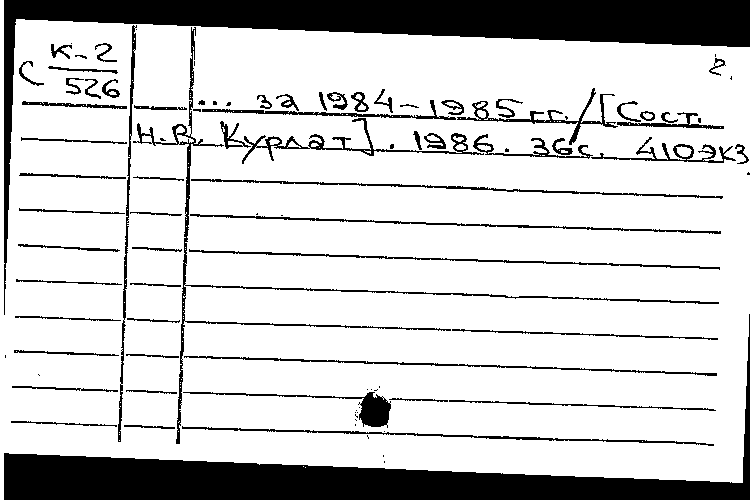 2.
С К-2
526
... за 1984-1985 гг. / [Сост.
Н.В. Курлат]. 1986. 36с. 410экз.